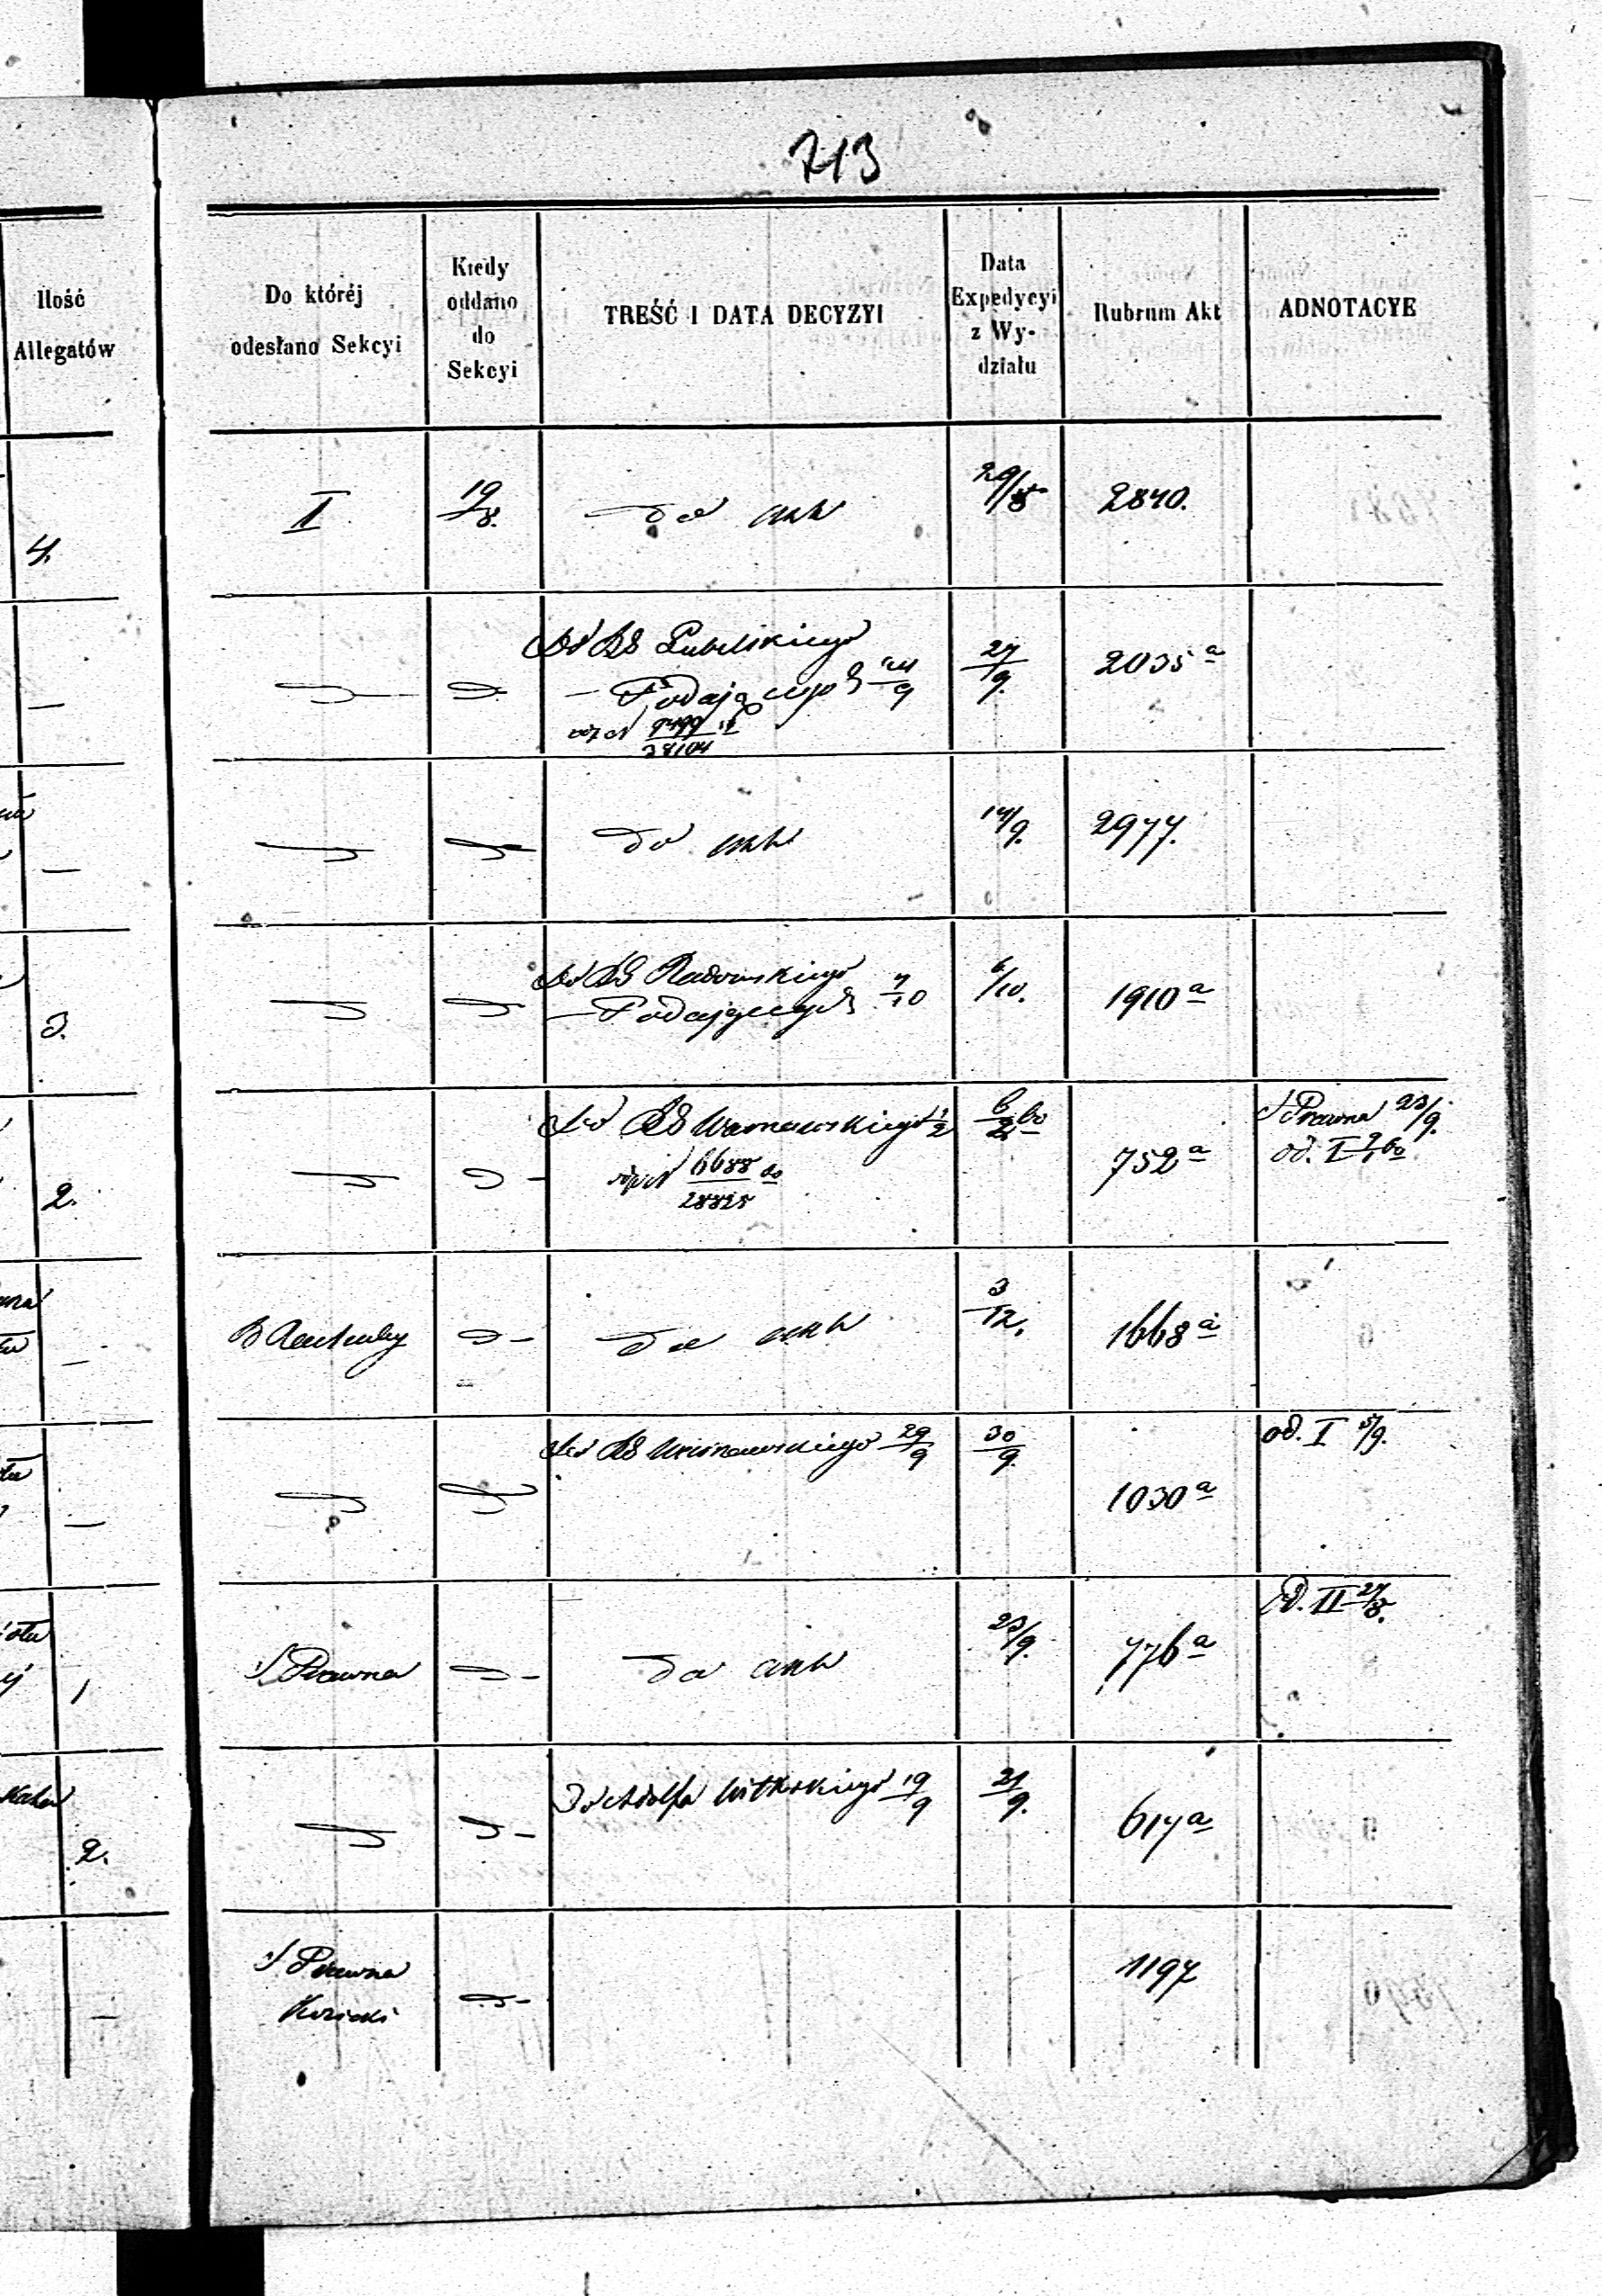 713
Ilość
Allegatów
Do któréj
odesłano Sekcyi
Kiedy
oddano
do
Sekcyi
TREŚĆ I DATA DECYZYI
Data
Expedycyi
z Wy-
działu
Rubrum Akt
ADNOTACYE
4. I 19/8. do akt 29/8 2840.
Do RG Lubelskiego
— Podającego 24/9 27/9. 2035 a
9499
38104
do akt 14/9. 2977.
3. Do RG Radomskiego
— Podającego 4/10 6/10. 1910 a
2. Do RG Warszawskiego 1/2 6/2 60 752 a S Prawna 23/9.
6688 60 od. I
28825
do akt 3/12. 1668 a
Do RG Warszawskiego 29/9 30/9. 1030 a od. I 5/9.
1 S Prawna do akt 23/9. 776 a od. II 27/8.
2. Do Adolfa Witkowskiego 19/9 21/9. 617 a
S Prawna
1197